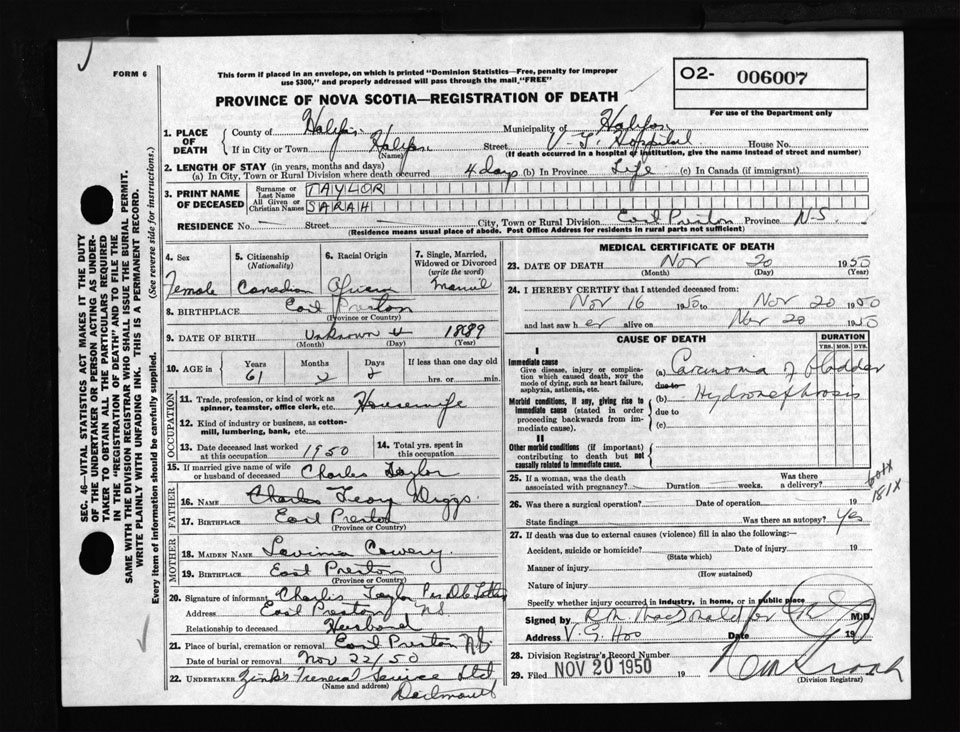 FORM 6
This form if placed in an envelope, on which is printed "Dominion Statistics—Free, penalty for improper
use $300," and properly addressed will pass through the mail, "FREE"
O2- 006007
For use of the Department only
PROVINCE OF NOVA SCOTIA—REGISTRATION OF DEATH
SEC. 46—VITAL STATISTICS ACT MAKES IT THE DUTY
OF THE UNDERTAKER OR PERSON ACTING AS UNDER-
TAKER TO OBTAIN ALL THE PARTICULARS REQUIRED
IN THE "REGISTRATION OF DEATH" AND TO FILE THE
SAME WITH THE DIVISION REGISTRAR WHO SHALL ISSUE THE BURIAL PERMIT.
WRITE PLAINLY WITH UNFADING INK. THIS IS A PERMANENT RECORD.
Every item of information should be carefully supplied. (See reverse side for instructions.)
1. PLACE OF DEATH
County of Halifax Municipality of Halifax
If in City or Town Halifax Street V.G. Hospital House No.
(Name) (If death occurred in a hospital or institution, give the name instead of street and number)
2. LENGTH OF STAY (in years, months and days)
(a) In City, Town or Rural Division where death occurred 4 days (b) In Province Life (c) In Canada (if immigrant)
3. PRINT NAME OF DECEASED
Surname or Last Name TAYLOR
All Given or Christian Names SARAH
RESIDENCE No. Street City, Town or Rural Division East Preston Province N-S.
(Residence means usual place of abode. Post Office Address for residents in rural parts not sufficient)
4. Sex Female
5. Citizenship (Nationality) Canadian
6. Racial Origin African
7. Single, Married, Widowed or Divorced (write the word)
8. BIRTHPLACE East Preston
(Province or Country)
9. DATE OF BIRTH Unknown 1889
(Month) (Day) (Year)
10. AGE in Years Months Days If less than one day old
61 2 2 hrs. or min.
OCCUPATION
11. Trade, profession, or kind of work as
spinner, teamster, office clerk, etc. Housewife
12. Kind of industry or business, as cotton-
mill, lumbering, bank, etc.
13. Date deceased last worked at this occupation 1950
14. Total yrs. spent in this occupation
15. If married give name of wife
or husband of deceased Charles Taylor
FATHER
16. NAME Charles Diggs
17. BIRTHPLACE East Preston
(Province or Country)
MOTHER
18. MAIDEN NAME Lavinia
19. BIRTHPLACE East Preston
(Province or Country)
20. Signature of informant Charles Taylor Per
Address East Preston NS
Relationship to deceased Husband
21. Place of burial, cremation or removal East Preston N.S.
Date of burial or removal Nov 22/50
22. UNDERTAKER Zink's Funeral Service Ltd
(Name and address) Dartmouth
MEDICAL CERTIFICATE OF DEATH
23. DATE OF DEATH Nov 20 1950
(Month) (Day) (Year)
24. I HEREBY CERTIFY that I attended deceased from:
Nov 16 1950 to Nov 20 1950
and last saw h er alive on Nov 20 1950
CAUSE OF DEATH DURATION
YRS. MOS. DYS.
I
Immediate cause
Give disease, injury or complica-
tion which caused death, not the
mode of dying, such as heart failure,
asphyxia, asthenia, etc.
(a) Carcinoma of bladder
due to
Morbid conditions, if any, giving rise to
immediate cause (stated in order
proceeding backwards from im-
mediate cause).
(b) Hydronephrosis
due to
(c)
II
Other morbid conditions (if important)
contributing to death but not
causally related to immediate cause.
25. If a woman, was the death
associated with pregnancy? Duration weeks. Was there a delivery?
181X
26. Was there a surgical operation? Date of operation 19
State findings Was there an autopsy? Yes
27. If death was due to external causes (violence) fill in also the following:
Accident, suicide or homicide? Date of injury 19
(State which)
Manner of injury
(How sustained)
Nature of injury
Specify whether injury occurred in industry, in home, or in public place
Signed by MacDonald for M.D.
Address V. G. Date 19
28. Division Registrar's Record Number
29. Filed NOV 20 1950 19
(Division Registrar)